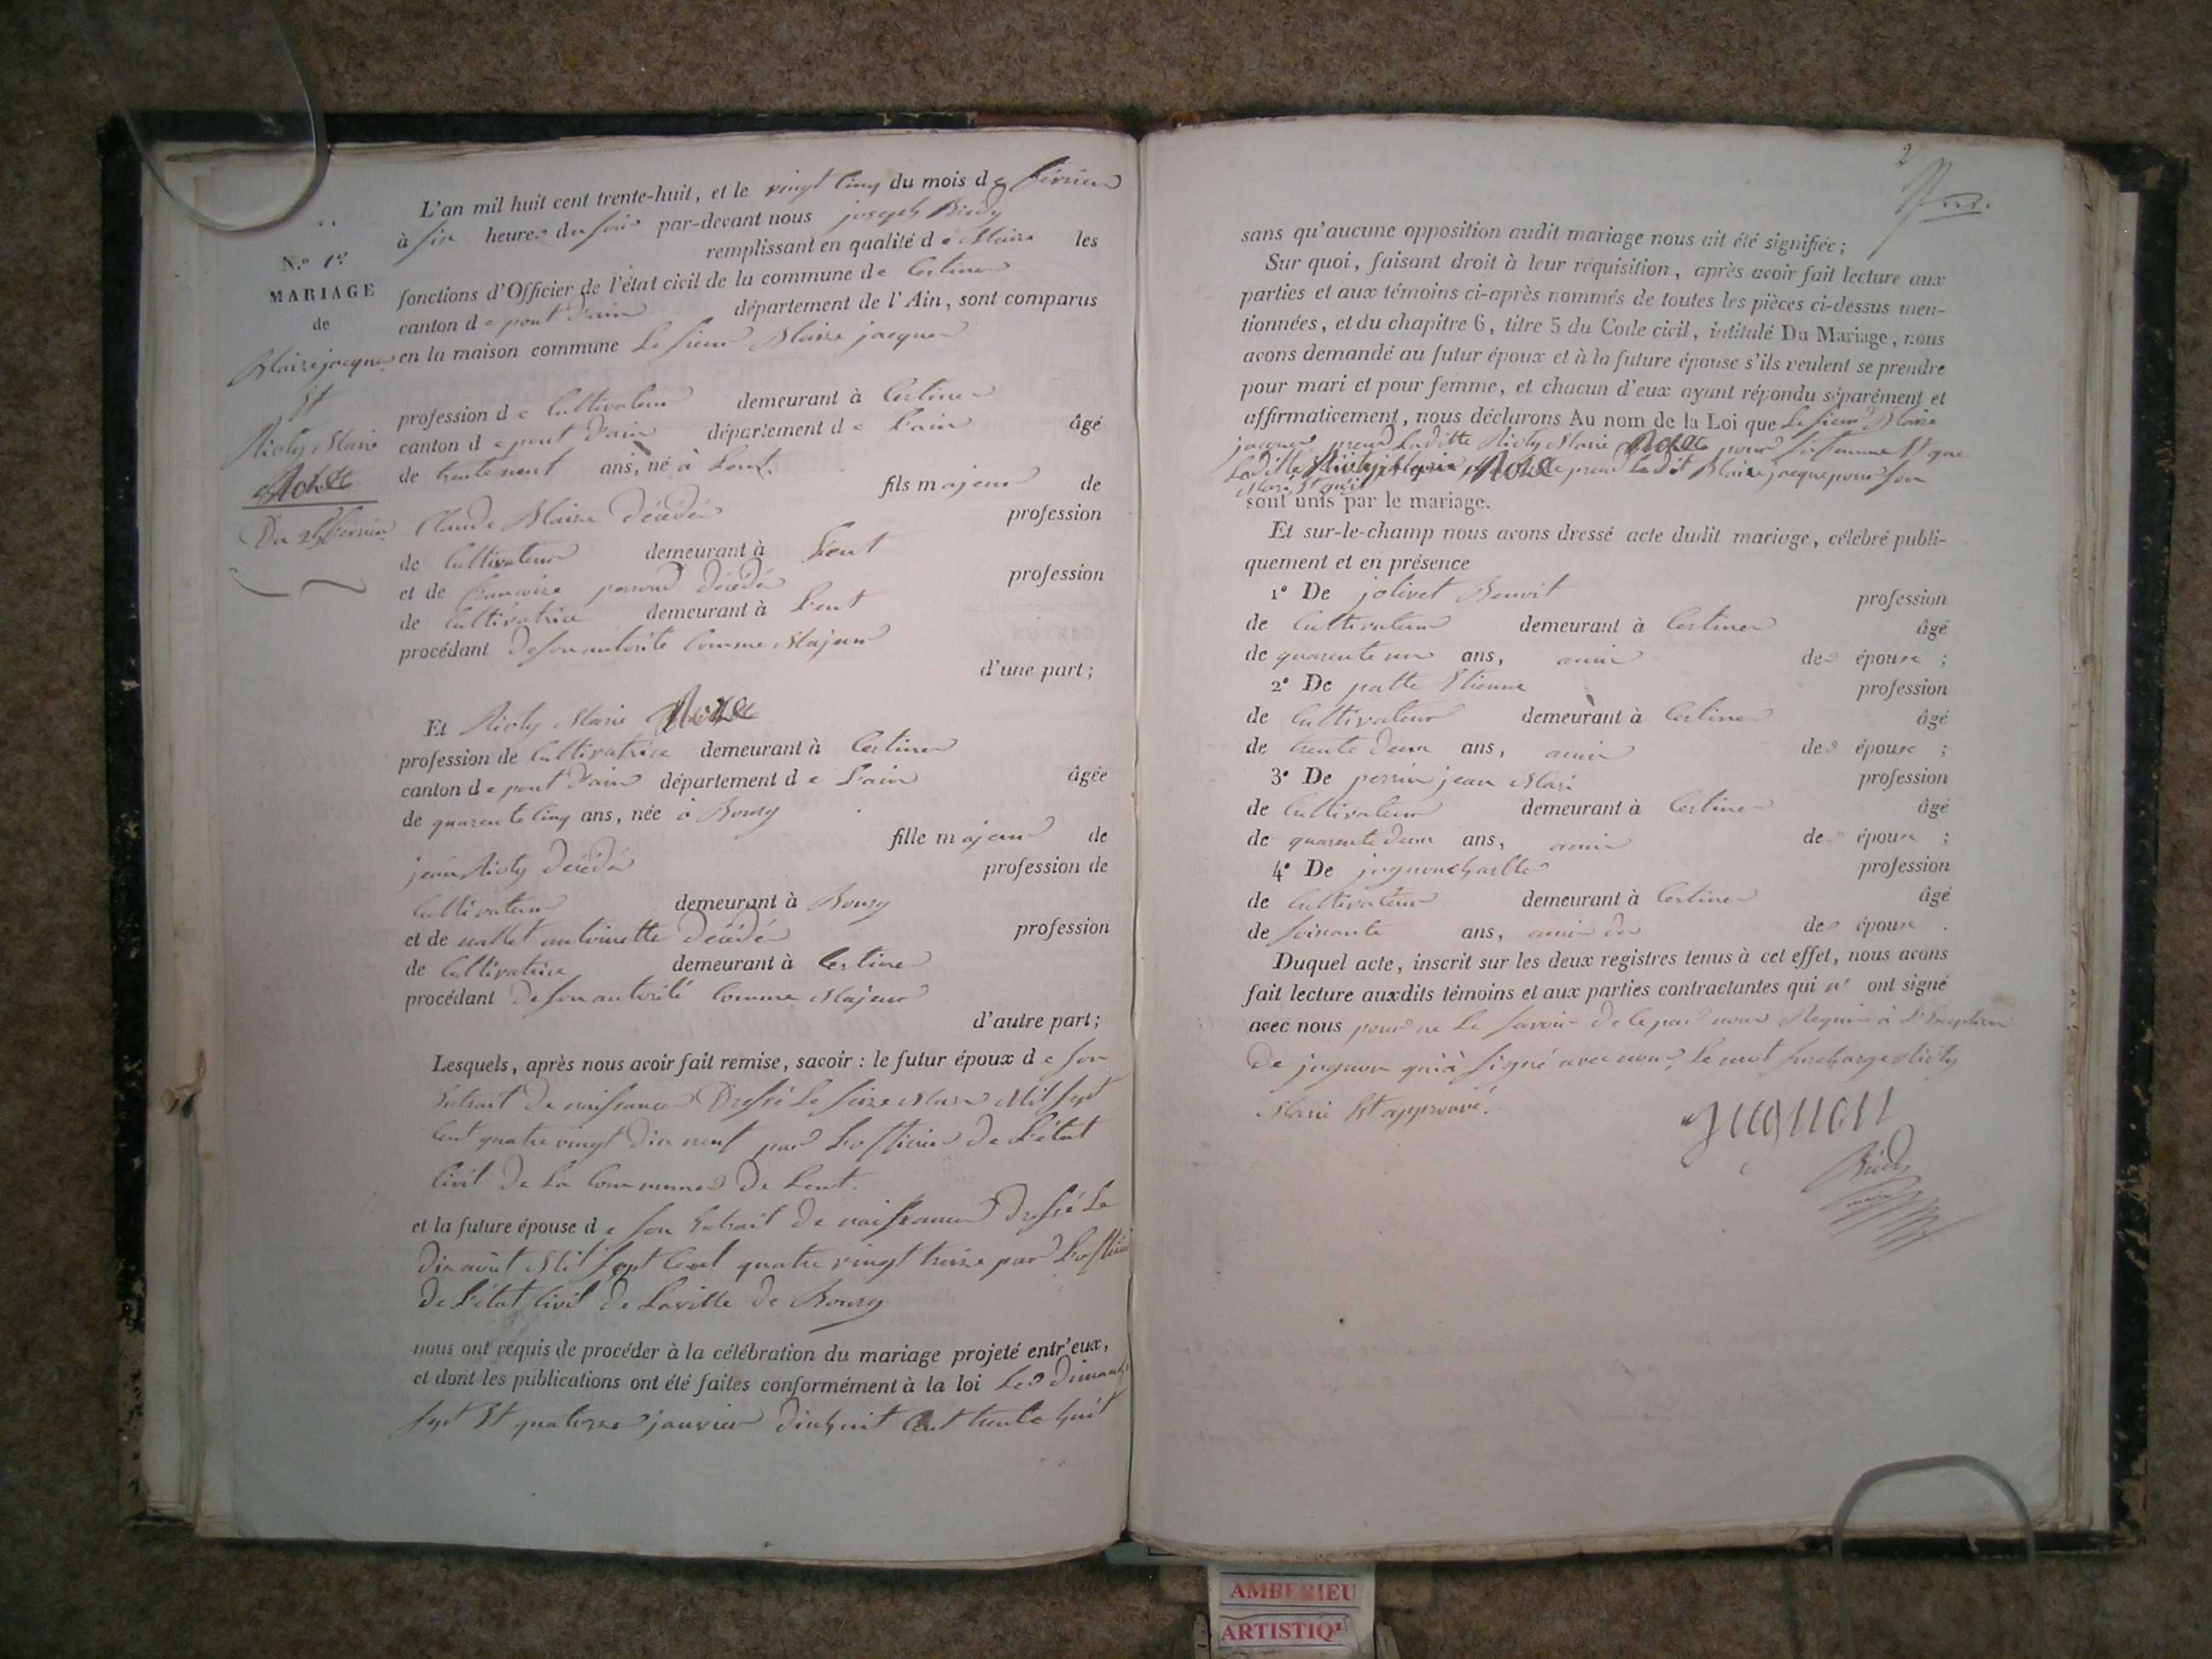 N.º 1er
MARIAGE
de
Blaize jacques
Et
Marie
Du 25 février
L'an mil huit cent trente-huit, et le vingt cinq du mois de février
à six heures du soir par-devant nous joseph
remplissant en qualité de Maire les
fonctions d'Officier de l'état civil de la commune de Certines
canton de pont d'ain département de l'Ain, sont comparus
en la maison commune Le sieur Blaize jacques
profession de Cultivateur demeurant à Certines
canton de pont d'ain département de L'ain âgé
de trente neuf ans, né à Lent.
fils majeur de
Claude Blaize décédé profession
de Cultivateur demeurant à Lent
et de françoise perroud décédé profession
de Cultivatrice demeurant à Lent
procédant de son autorité Comme Majeur
d'une part;
Et Marie
profession de Cultivatrice demeurant à Certines
canton de pont d'ain département de L'ain âgée
de quarente cinq ans, née à Bourg
fille majeur de
jean décédé profession de
Cultivateur demeurant à Bourg
et de nallet antoinette décédé profession
de Cultivatrice demeurant à Certines
procédant de son autorité Comme Majeur
d'autre part;
Lesquels, après nous avoir fait remise, savoir : le futur époux de son
Extrait de naissance Dressé Le seize Mars Mil sept
Cent quatre vingt dix neuf par L'officier de L'état
Civil de La Commune de Lent.
et la future épouse de son Extrait de naissance dressé Le
dix août Mil sept Cent quatre vingt treize par L'officier
de L'état Civil de Laville de Bourg
nous ont requis de procéder à la célébration du mariage projeté entr'eux,
et dont les publications ont été faites conformément à la loi Les Dimanche
sept Et quatorze janvier dixhuit Cent trente huit
2
sans qu'aucune opposition audit mariage nous ait été signifiée;
Sur quoi, faisant droit à leur réquisition, après avoir fait lecture aux
parties et aux témoins ci-après nommés de toutes les pièces ci-dessus men-
tionnées, et du chapitre 6, titre 5 du Code civil, intitulé Du Mariage, nous
avons demandé au futur époux et à la future épouse s'ils veulent se prendre
pour mari et pour femme, et chacun d'eux ayant répondu séparément et
affirmativement, nous déclarons Au nom de la Loi que Le sieur Blaize
jacques prend Laditte Marie pour sa femme Et que
Laditte prend Ledit Blaize jacque pour son
Mari, Et qu'ils
sont unis par le mariage.
Et sur-le-champ nous avons dressé acte dudit mariage, célébré publi-
quement et en présence
1º De jolivet Benoit profession
de Cultivateur demeurant à Certines âgé
de quarente un ans, amis des époux ;
2º De patte Etienne profession
de Cultivateur demeurant à Certines âgé
de trente deux ans, amis des époux ;
3º De perrin jean Mari profession
de Cultivateur demeurant à Certines âgé
de quarente deux ans, amis des époux ;
4º De jugnon Charles profession
de Cultivateur demeurant à Certines âgé
de soixante ans, amis des des époux .
Duquel acte, inscrit sur les deux registres tenus à cet effet, nous avons
fait lecture auxdits témoins et aux parties contractantes qui n' ont signé
avec nous pour ne Le savoir de ce par nous Requis à L'Exception
De jugnon qui à signé avec nous, Le mot surchargé
Marie Est approuvé.
Jugnon
maire
AMBERIEU
ARTISTIQ